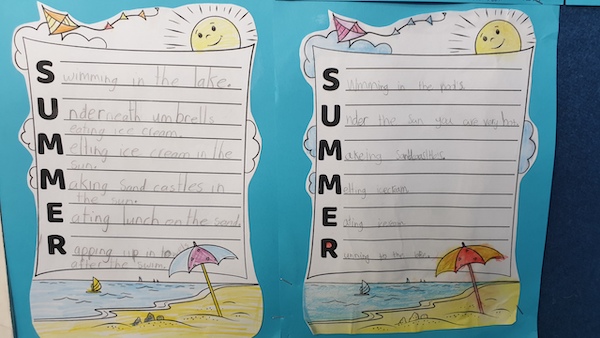 Swimming in the lake.
Underneath umbrells
eating ice cream.
Melting ice cream in the
sun.
Making sand castles in
the sun.
Eating lunch on the sand.
Rapping up in
after the swim.
Swimming in the
Under the sun you are very hot.
Makeing
Melting icecream.
Eating
Running to the